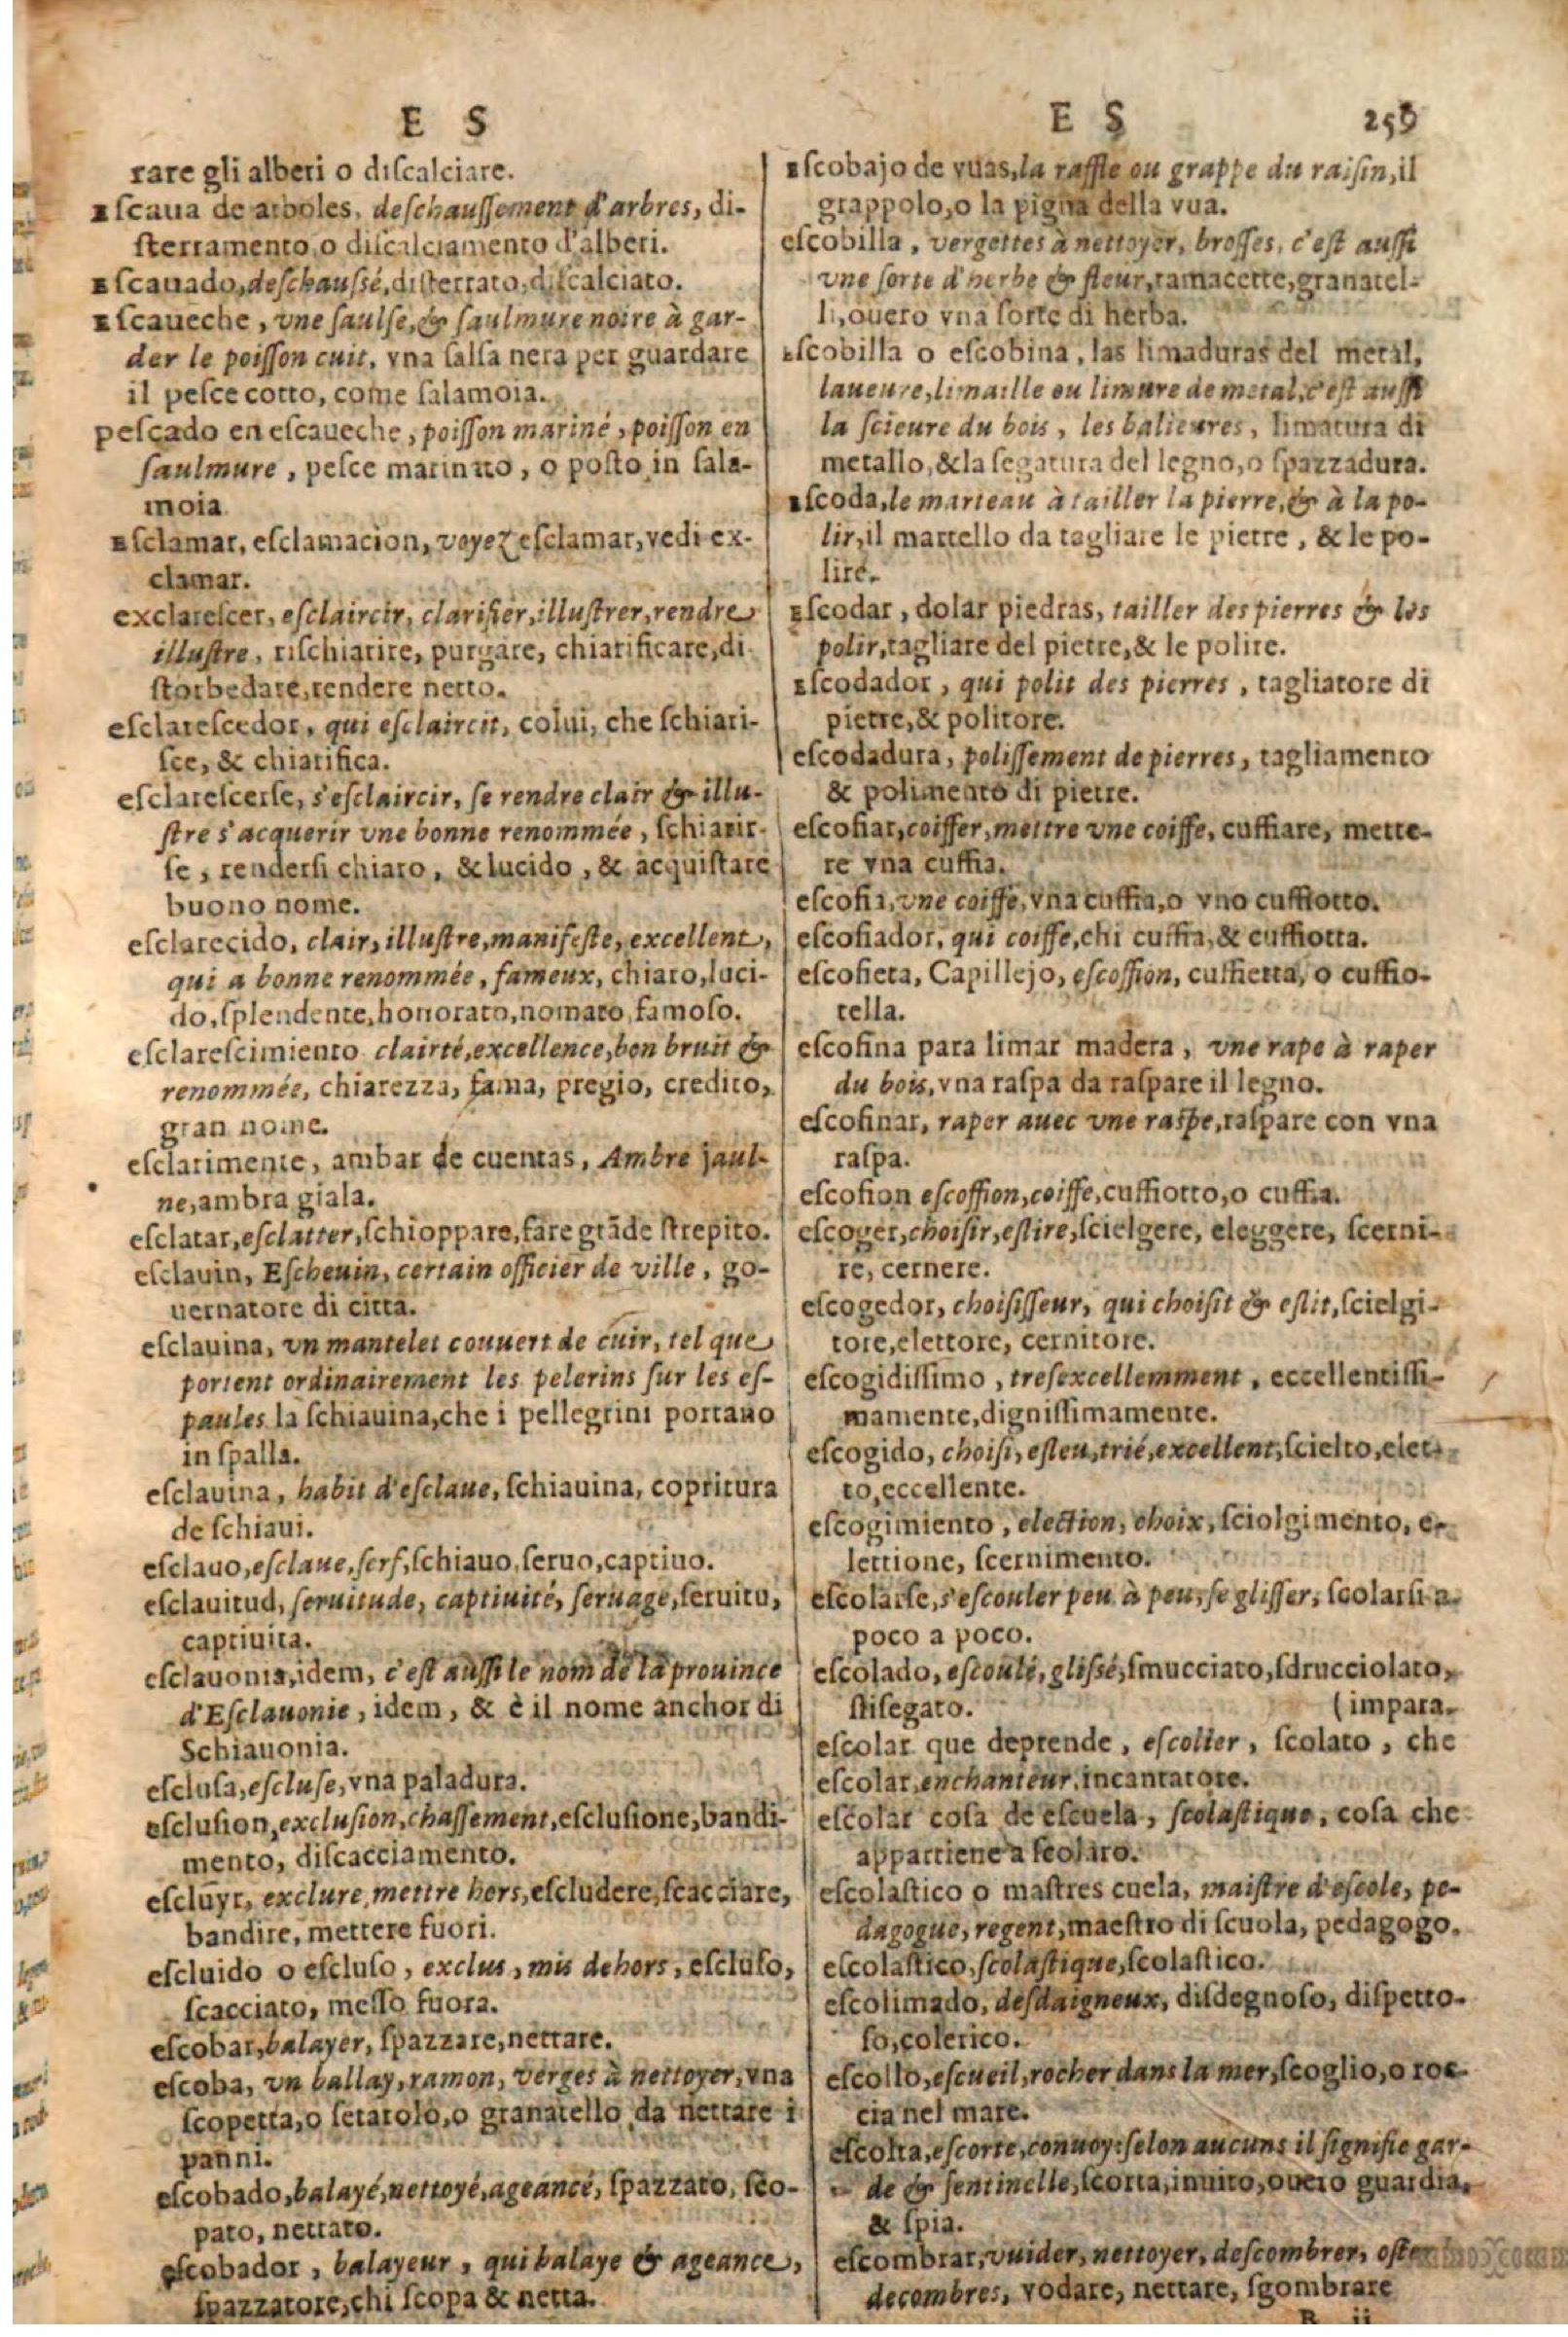 E S
rare gli alberi o diſcalciare.
Eſcaua de arboles, deſchauſſement d'arbres, di-
ſterramento o diſcalciamento d'alberi.
Eſcauado, deſchauſsé, diſterrato, diſcalciato.
Eſcaueche, vne ſaulſe, & ſaulmure noire à gar-
der le poiſſon cuit, vna ſalſa nera per guardare
il peſce cotto, come ſalamoia.
peſcado en eſcaueche, poiſſon mariné, poiſſon en
ſaulmure, peſce marinato, o poſto in ſala-
moia
Eſclamar, eſclamacion, voyez eſclamar, vedi ex-
clamar.
exclareſcer, eſclaircir, clarifier, illuſtrer, rendre
illuſtre, riſchiarire, purgare, chiarificare, di
ſtorbedare, rendere netto.
eſclareſcedor, qui eſclaircit, colui, che ſchiari-
ſce, & chiarifica.
eſclareſcerſe, s'eſclaircir, ſe rendre clair & illu-
ſtre s'acquerir vne bonne renommée, ſchiarir-
ſe, renderſi chiaro, & lucido, & acquiſtare
buono nome.
eſclarecido, clair, illuſtre, manifeſte, excellent,
qui a bonne renommée, fameux, chiaro, luci-
do, ſplendente, honorato, nomato, famoſo.
eſclareſcimiento clairté, excellence, bon bruit &
renommée, chiarezza, fama, pregio, credito,
gran nome.
eſclarimente, ambar de cuentas, Ambre jaul-
ne, ambra giala.
eſclatar, eſclatter, ſchioppare, fare grāde ſtrepito.
eſclauin, Eſcheuin, certain officier de ville, go-
uernatore di citta.
eſclauina, vn mantelet couuert de cuir, tel que
portent ordinairement les pelerins ſur les eſ-
paules la ſchiauina, che i pellegrini portano
in ſpalla.
eſclauina, habit d'eſclaue, ſchiauina, copritura
de ſchiaui.
eſclauo, eſclaue, ſerf, ſchiauo, ſeruo, captiuo.
eſclauitud, ſeruitude, captiuité, ſeruage, ſeruitu,
captiuita.
eſclauonia, idem, c'eſt auſſi le nom de la prouince
d'Eſclauonie, idem, & è il nome anchor di
Schiauonia.
eſcluſa, eſcluſe, vna paladura.
eſcluſion, excluſion, chaſſement, eſcluſione, bandi-
mento, diſcacciamento.
eſcluyr, exclure, mettre hors, eſcludere, ſcacciare,
bandire, mettere fuori.
eſcluido o eſcluſo, exclus, mis dehors, eſcluſo,
ſcacciato, meſſo fuora.
eſcobar, balayer, ſpazzare, nettare.
eſcoba, vn ballay, ramon, verges à nettoyer, vna
ſcopetta, o ſetatolo, o granatello da nettare i
panni.
eſcobado, balayé, nettoyé, ageancé, ſpazzato, ſco-
pato, nettato.
eſcobador, balayeur, qui balaye & ageance,
ſpazzatore, chi ſcopa & netta.
E S 259
Eſcobajo de vuas, la raffle ou grappe du raiſin, il
grappolo, o la pigna della vua.
eſcobilla, vergettes à nettoyer, broſſes, c'eſt auſſi
vne ſorte d'herbe & fleur, ramacette, granatel-
li, ouero vna ſorte di herba.
Eſcobilla o eſcobina, las limaduras del metal,
laueure, limaille ou limure de metal, c'eſt auſſi
la ſcieure du bois, les balieures, limatura di
metallo, & la ſegatura del legno, o ſpazzadura.
Eſcoda, le marteau à tailler la pierre, & à la po-
lir, il martello da tagliare le pietre, & le po-
lire.
Eſcodar, dolar piedras, tailler des pierres & les
polir, tagliare del pietre, & le polire.
Eſcodador, qui polit des pierres, tagliatore di
pietre, & politore.
eſcodadura, poliſſement de pierres, tagliamento
& polimento di pietre.
eſcofiar, coiffer, mettre vne coiffe, cuffiare, mette-
re vna cuffia.
eſcofia, vne coiffe, vna cuffia, o vno cuffiotto.
eſcofiador, qui coiffe, chi cuffia, & cuffiotta.
eſcofieta, Capillejo, eſcoffion, cuffietta, o cuffio-
tella.
eſcofina para limar madera, vne rape à raper
du bois, vna raſpa da raſpare il legno.
eſcofinar, raper auec vne raſpe, raſpare con vna
raſpa.
eſcofion eſcoffion, coiffe, cuffiotto, o cuffia.
eſcoger, choiſir, eſlire, ſcielgere, eleggere, ſcerni-
re, cernere.
eſcogedor, choiſiſſeur, qui choiſit & eſlit, ſcielgi-
tore, elettore, cernitore.
eſcogidiſſimo, treſexcellemment, eccellentiſſi-
mamente, digniſſimamente.
eſcogido, choiſi, eſleu, trié, excellent, ſcielto, elet-
to, eccellente.
eſcogimiento, election, choix, ſciolgimento, e-
lettione, ſcernimento.
eſcolarſe, s'eſcouler peu à peu, ſe gliſſer, ſcolarſi a
poco a poco.
eſcolado, eſcoulé, gliſsé, ſmucciato, ſdrucciolato,
ſtiſegato. (impara.
eſcolar que deprende, eſcolier, ſcolato, che
eſcolar, enchanteur, incantatore.
eſcolar coſa de eſcuela, ſcolaſtique, coſa che
appartiene a ſcolaro.
eſcolaſtico o maſtres cuela, maiſtre d'eſcole, pe-
dagogue, regent, maeſtro di ſcuola, pedagogo.
eſcolaſtico, ſcolaſtique, ſcolaſtico.
eſcolimado, deſdaigneux, diſdegnoſo, diſpetto-
ſo, colerico.
eſcollo, eſcueil, rocher dans la mer, ſcoglio, o roc-
cia nel mare.
eſcolta, eſcorte, conuoy: ſelon aucuns il ſignifie gar-
de & ſentinelle, ſcorta, inuito, ouero guardia,
& ſpia.
eſcombrar, vuider, nettoyer, deſcombrer, oſter
decombres, vodare, nettare, ſgombrare
R ii